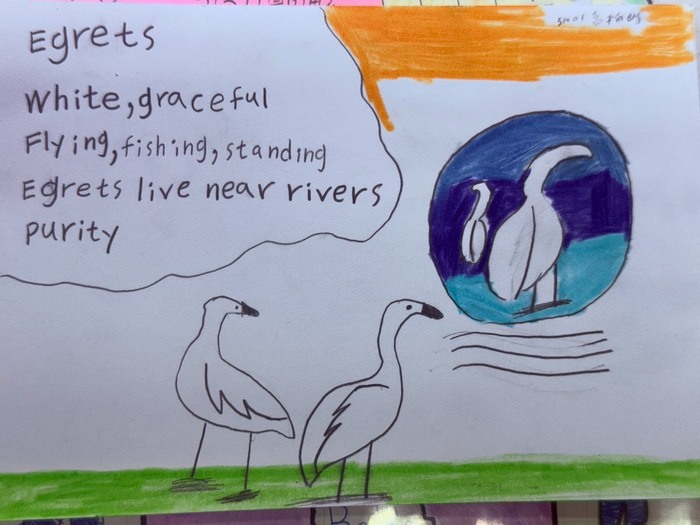 Egrets
White,graceful
Flying,fishing,standing
Egrets live near rivers
purity